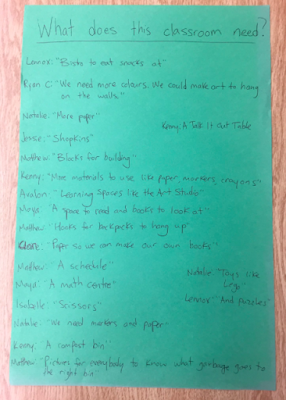 What does this classroom need?
Lennox: "Bistro to eat snacks at"
Ryen C "We need more colours. We could make art to hang
on the walls."
Natalie: "More paper"
Kenny: A Talk It Out Table
Jesse: "Shopkins"
Matthew: "Blocks for building"
Kenny: "More materials to use like paper, markers, crayons"
Avalon: "Learning Spaces like the Art Studio"
Maya: "A space to read and books to look at"
Matthew: "Hooks for backpacks to hang up"
"Paper so we can make our own books"
Matthew: "A schedule"
Natalie: "Toys like
Lego"
Maya: "A math centre"
Lennox: "And puzzles"
Isabelle: "Scissors"
Natalie: "We need markers and paper"
Kenny: "A compost bin"
Matthew: "Picture for everybody to know what garbage goes to
the right bin"